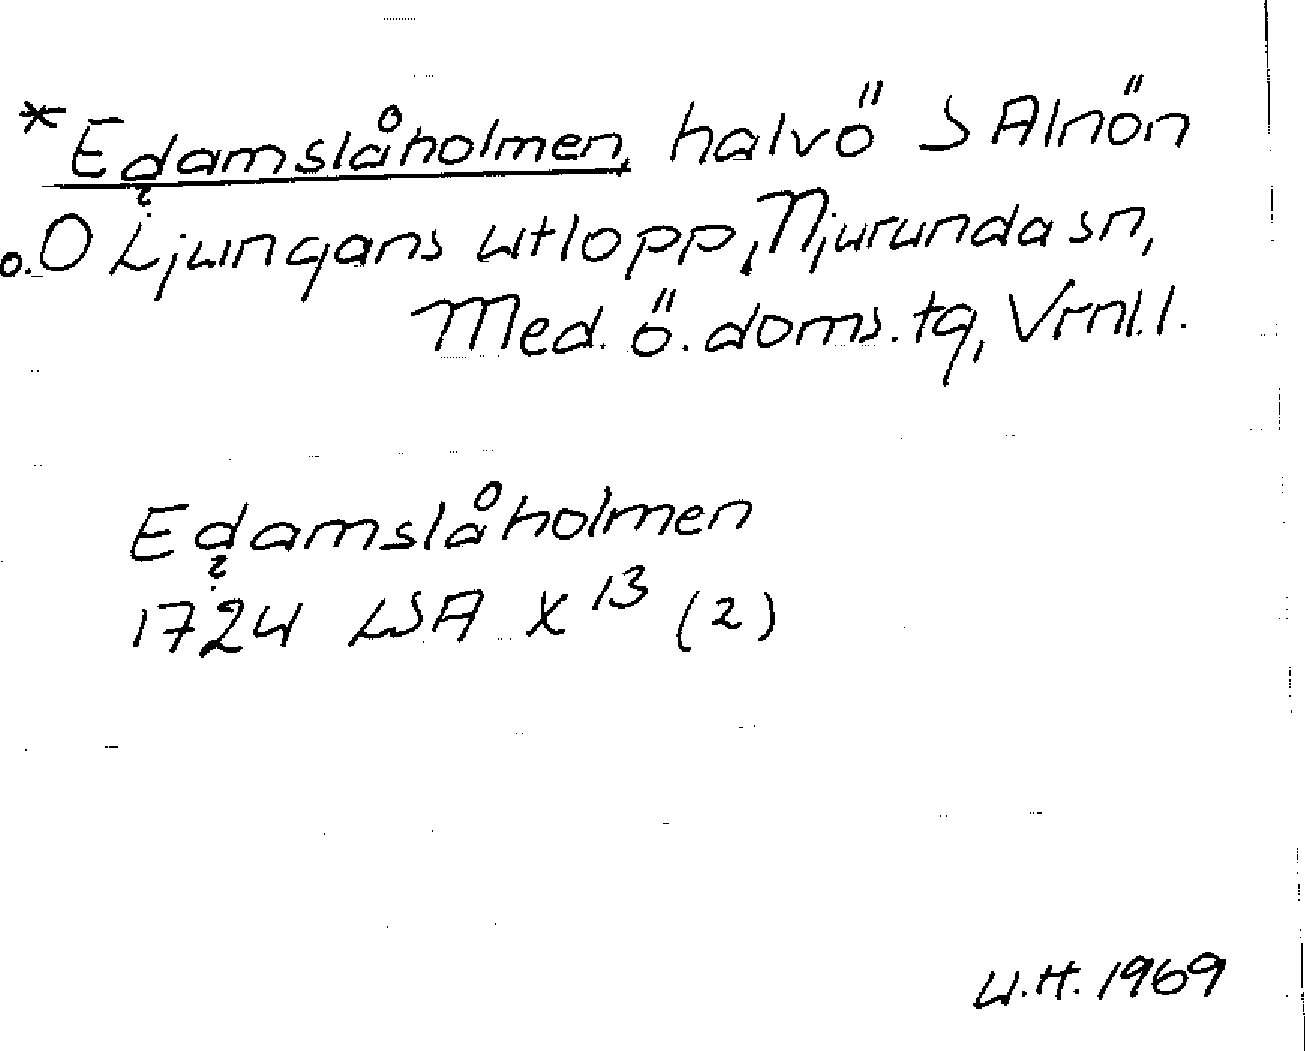 *Edamslåholmen, halvö S Alnön
o. O Ljungans utlopp, Njurunda sn,
Med. ö. doms. tg, Vrnl. l.
Edamslåholmen
?
1724 LSA X 13 (2)
U.H. 1969